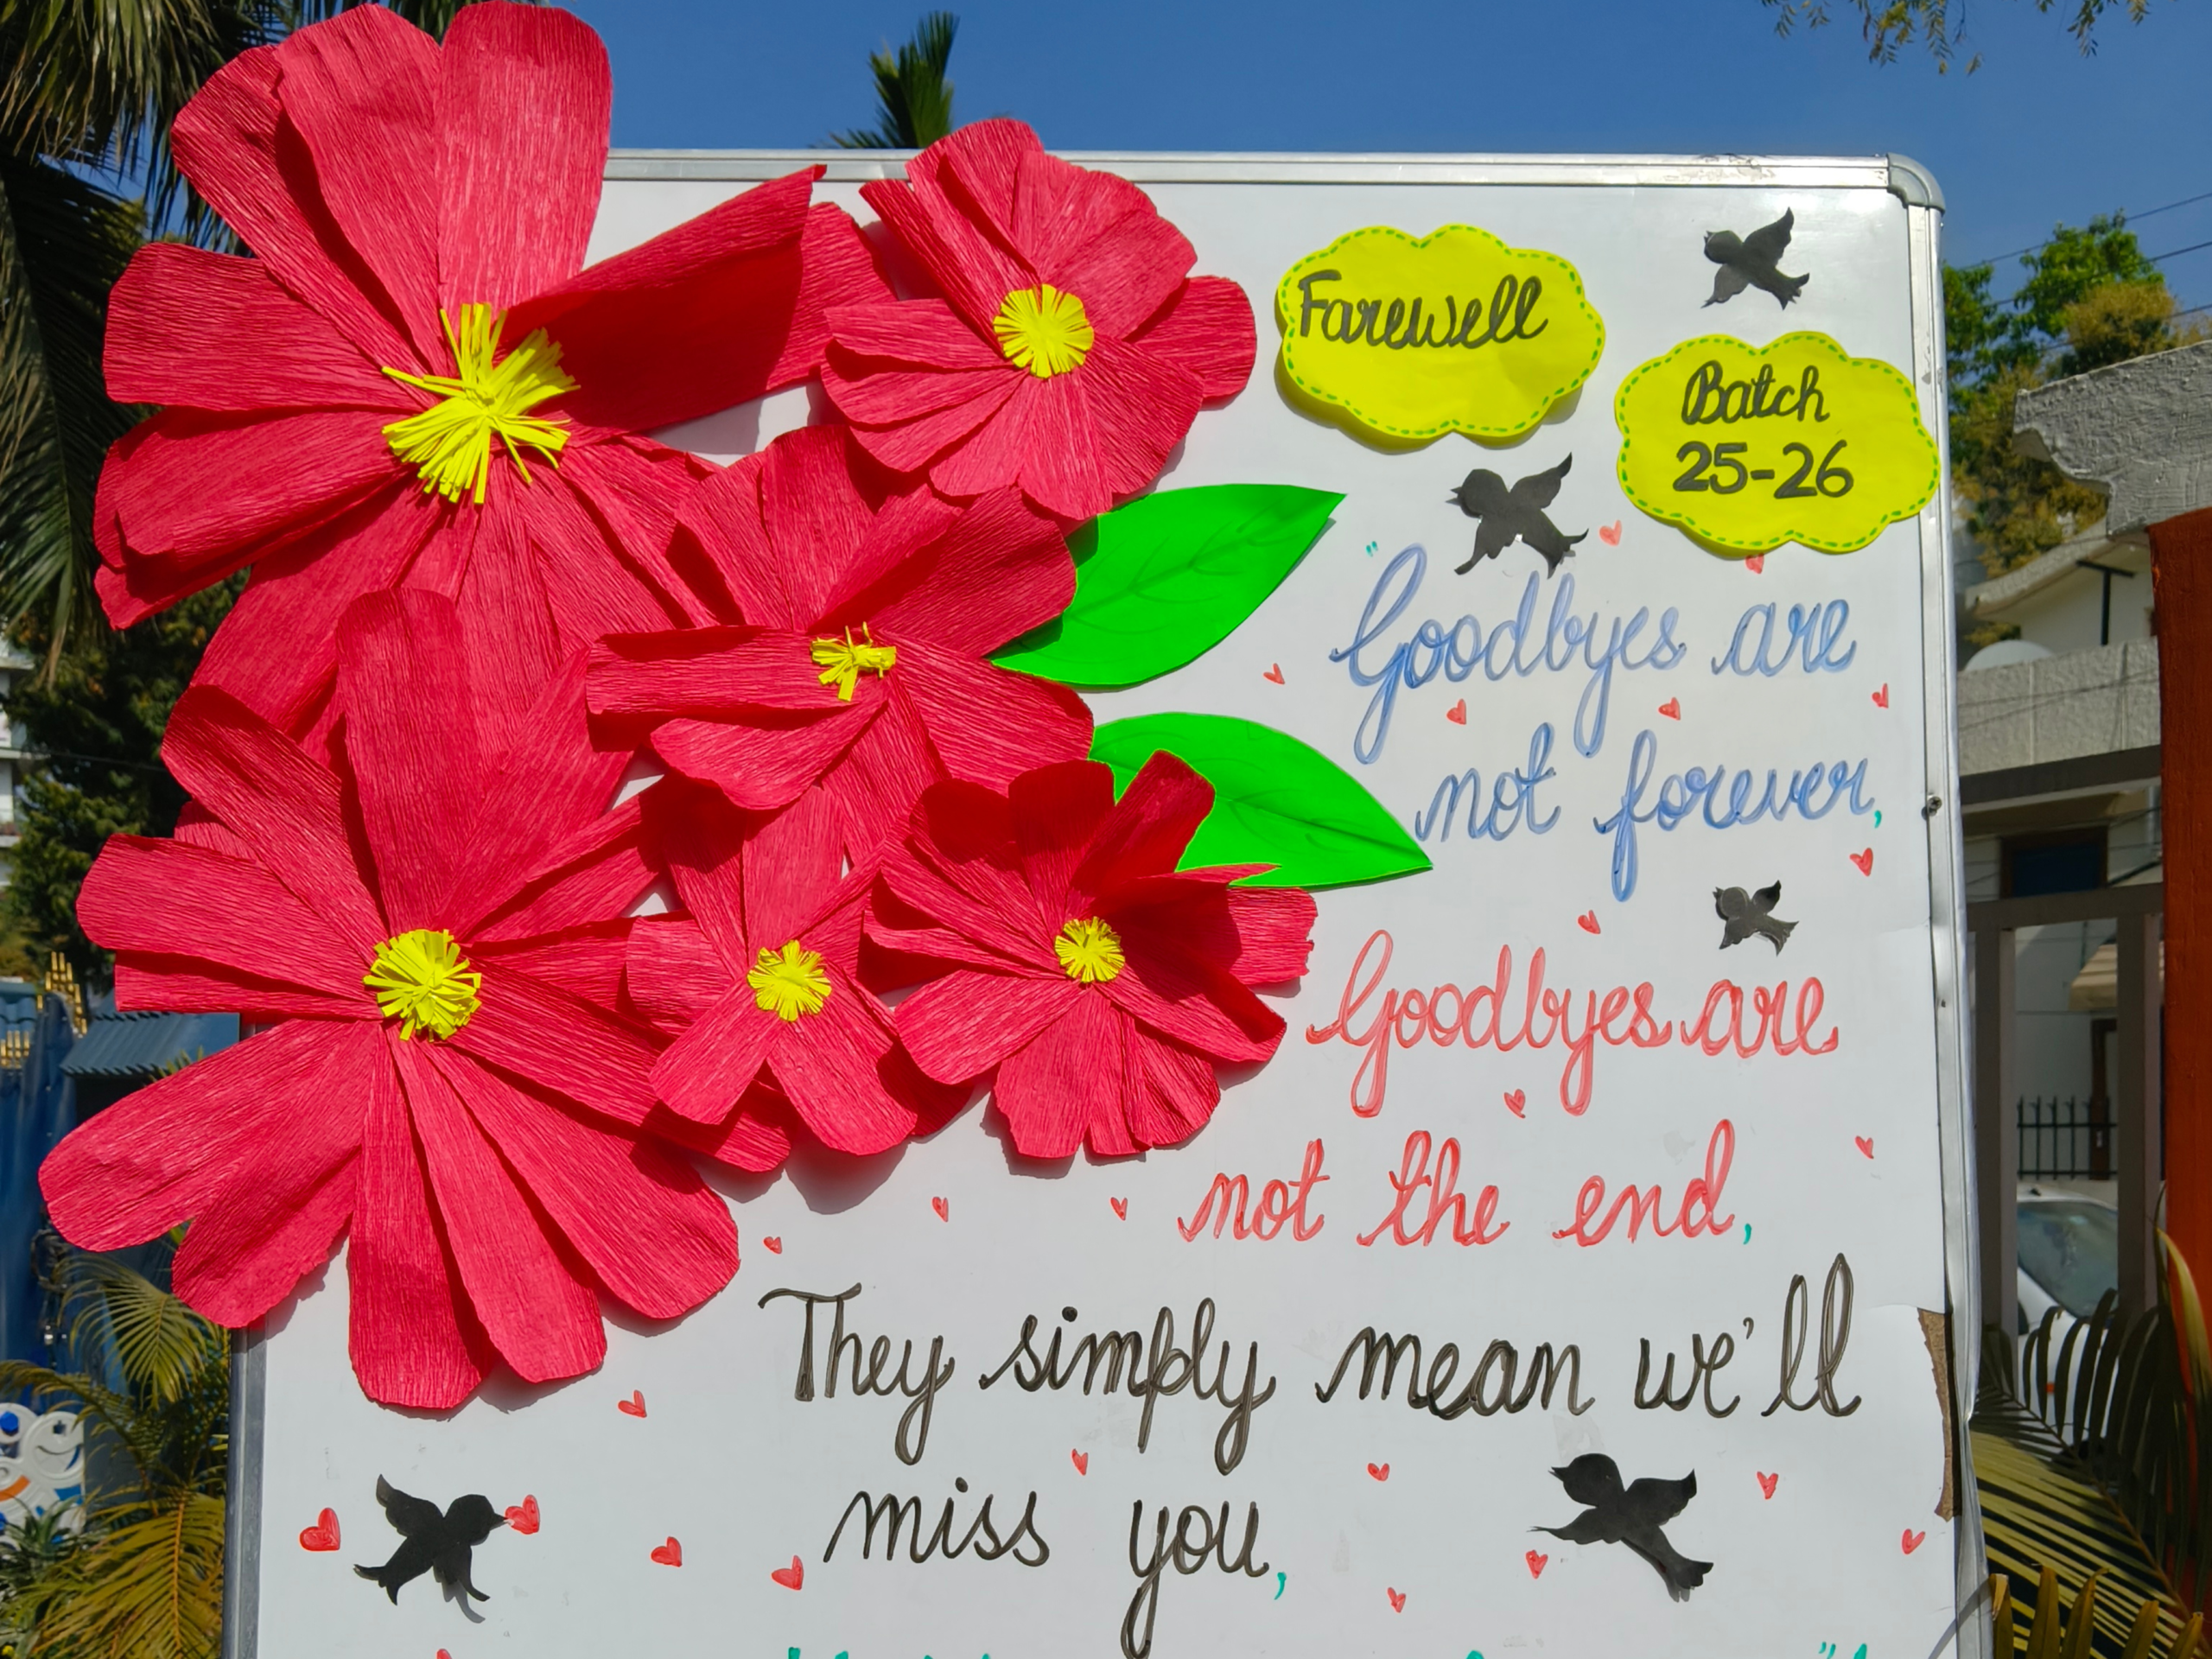 Farewell
Batch
25-26
"Goodbyes are
not forever,
Goodbyes are
not the end,
They simply mean we'll
miss you,